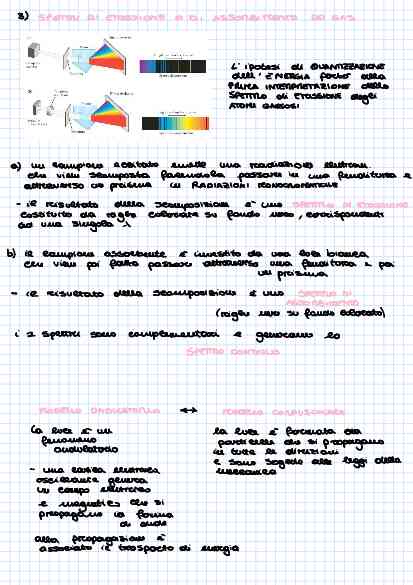 3) SPETTRI DI EMISSIONE E DI ASSORBIMENTO DEI GAS
L'ipotesi di QUANTIZZAZIONE
dell'ENERGIA portò alla
PRIMA INTERPRETAZIONE dello
SPETTRO di EMISSIONE degli
ATOMI GASSOSI
a) un campione eccitato emette una radiazione elettrom.
che viene scomposta facendola passare in una fenditura e
attraverso un prisma in RADIAZIONI MONOCROMATICHE
- il risultato della scomposizione è uno SPETTRO DI EMISSIONE
costituito da righe colorate su fondo nero, corrispondenti
ad una singola λ
b) il campione assorbente è investito da una luce bianca
che viene poi fatta passare attraverso una fenditura e poi
un prisma
- il risultato della scomposizione è uno SPETTRO DI
ASSORBIMENTO
(righe nere su fondo colorato)
i 2 spettri sono complementari e generano lo
SPETTRO CONTINUO
MODELLO ONDULATORIO ↔ MODELLO CORPUSCOLARE
la luce è un
fenomeno
ondulatorio
- una carica elettrica
oscillante genera
un campo elettrico
e magnetico che si
propagano in forma
di onde
alla propagazione è
associato il trasporto di energia
la luce è formata da
particelle che si propagano
in tutte le direzioni
e sono soggette alle leggi della
meccanica